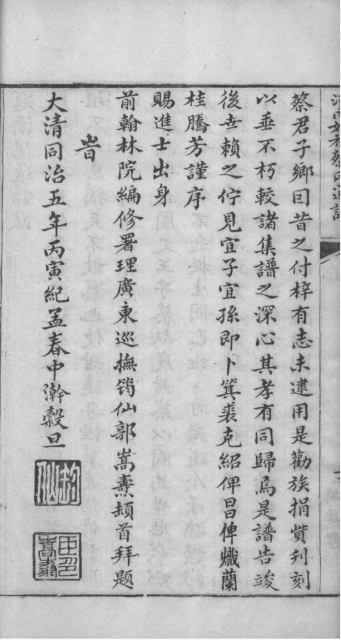 蔡君子鄉曰昔之付梓有志未逮用是勸族捐貲刋刻
以垂不朽較諸集譜之深心其孝有同歸焉是譜告竣
後世賴之佇見宜子宜孫即卜箕裘克紹俾昌俾熾蘭
桂騰芳謹序
賜進士出身
前翰林院編修署理廣東巡撫筠仙郭嵩燾頓首拜題
旹
大清同治五年丙寅紀孟春中澣穀旦